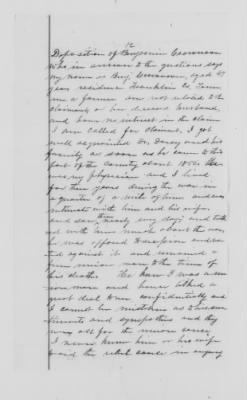 12
Deposition of Benjamin
who in answer to the questions says
my name is Benj aged 47
years residence Franklin Co. Tenn
am a farmer am not related to the
claimants or her deceased husband,
and have no interest in the claim
I am called for claimant. I got
well acquainted Dr. and his
family as soon as he came to this
part of the county about 1850. He
was my physician and I lived
for two years during the war in
a quarter of a mile of him and was
intimate with him and his wife
and saw them nearly every day and talked
with him much about the war
he was opposed to secession and
against it and remained a
union man to the time of
his death. He knew I was a union
man and have talked a
great deal to me confidentially and
I cannot be mistaken as to his
sentiments and sympathies and they
were all for the union cause
I never knew him or his wife
to aid the rebel cause in anyway